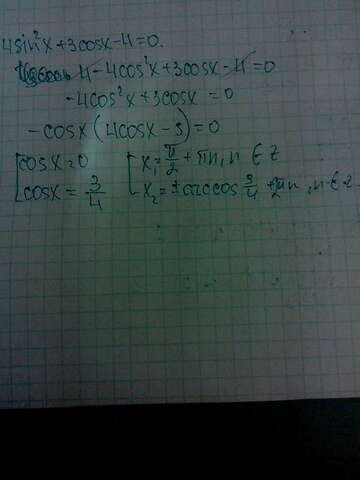 4sin²x+3cosx-4=0.
4-4cos²x+3cosx-4=0
-4cos²x+3cosx=0
-cosx(4cosx-3)=0
[cosx=0 [x₁=π/2+πn, n∈Z
[cosx=3/4 [x₂=±arccos 3/4+2πn, n∈Z